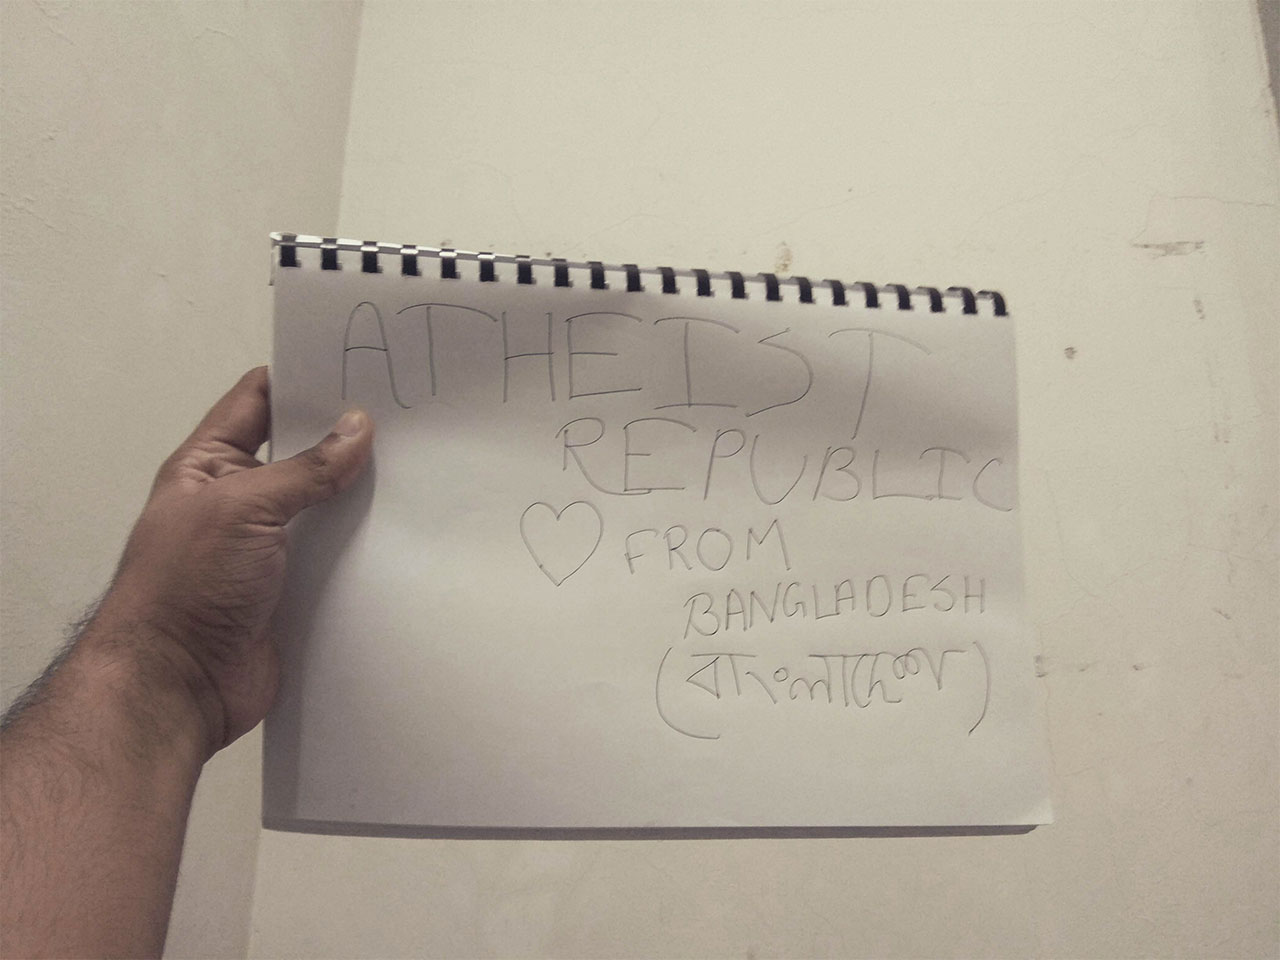 ATHEIST
REPUBLIC
♡ FROM
BANGLADESH
(বাংলাদেশ)